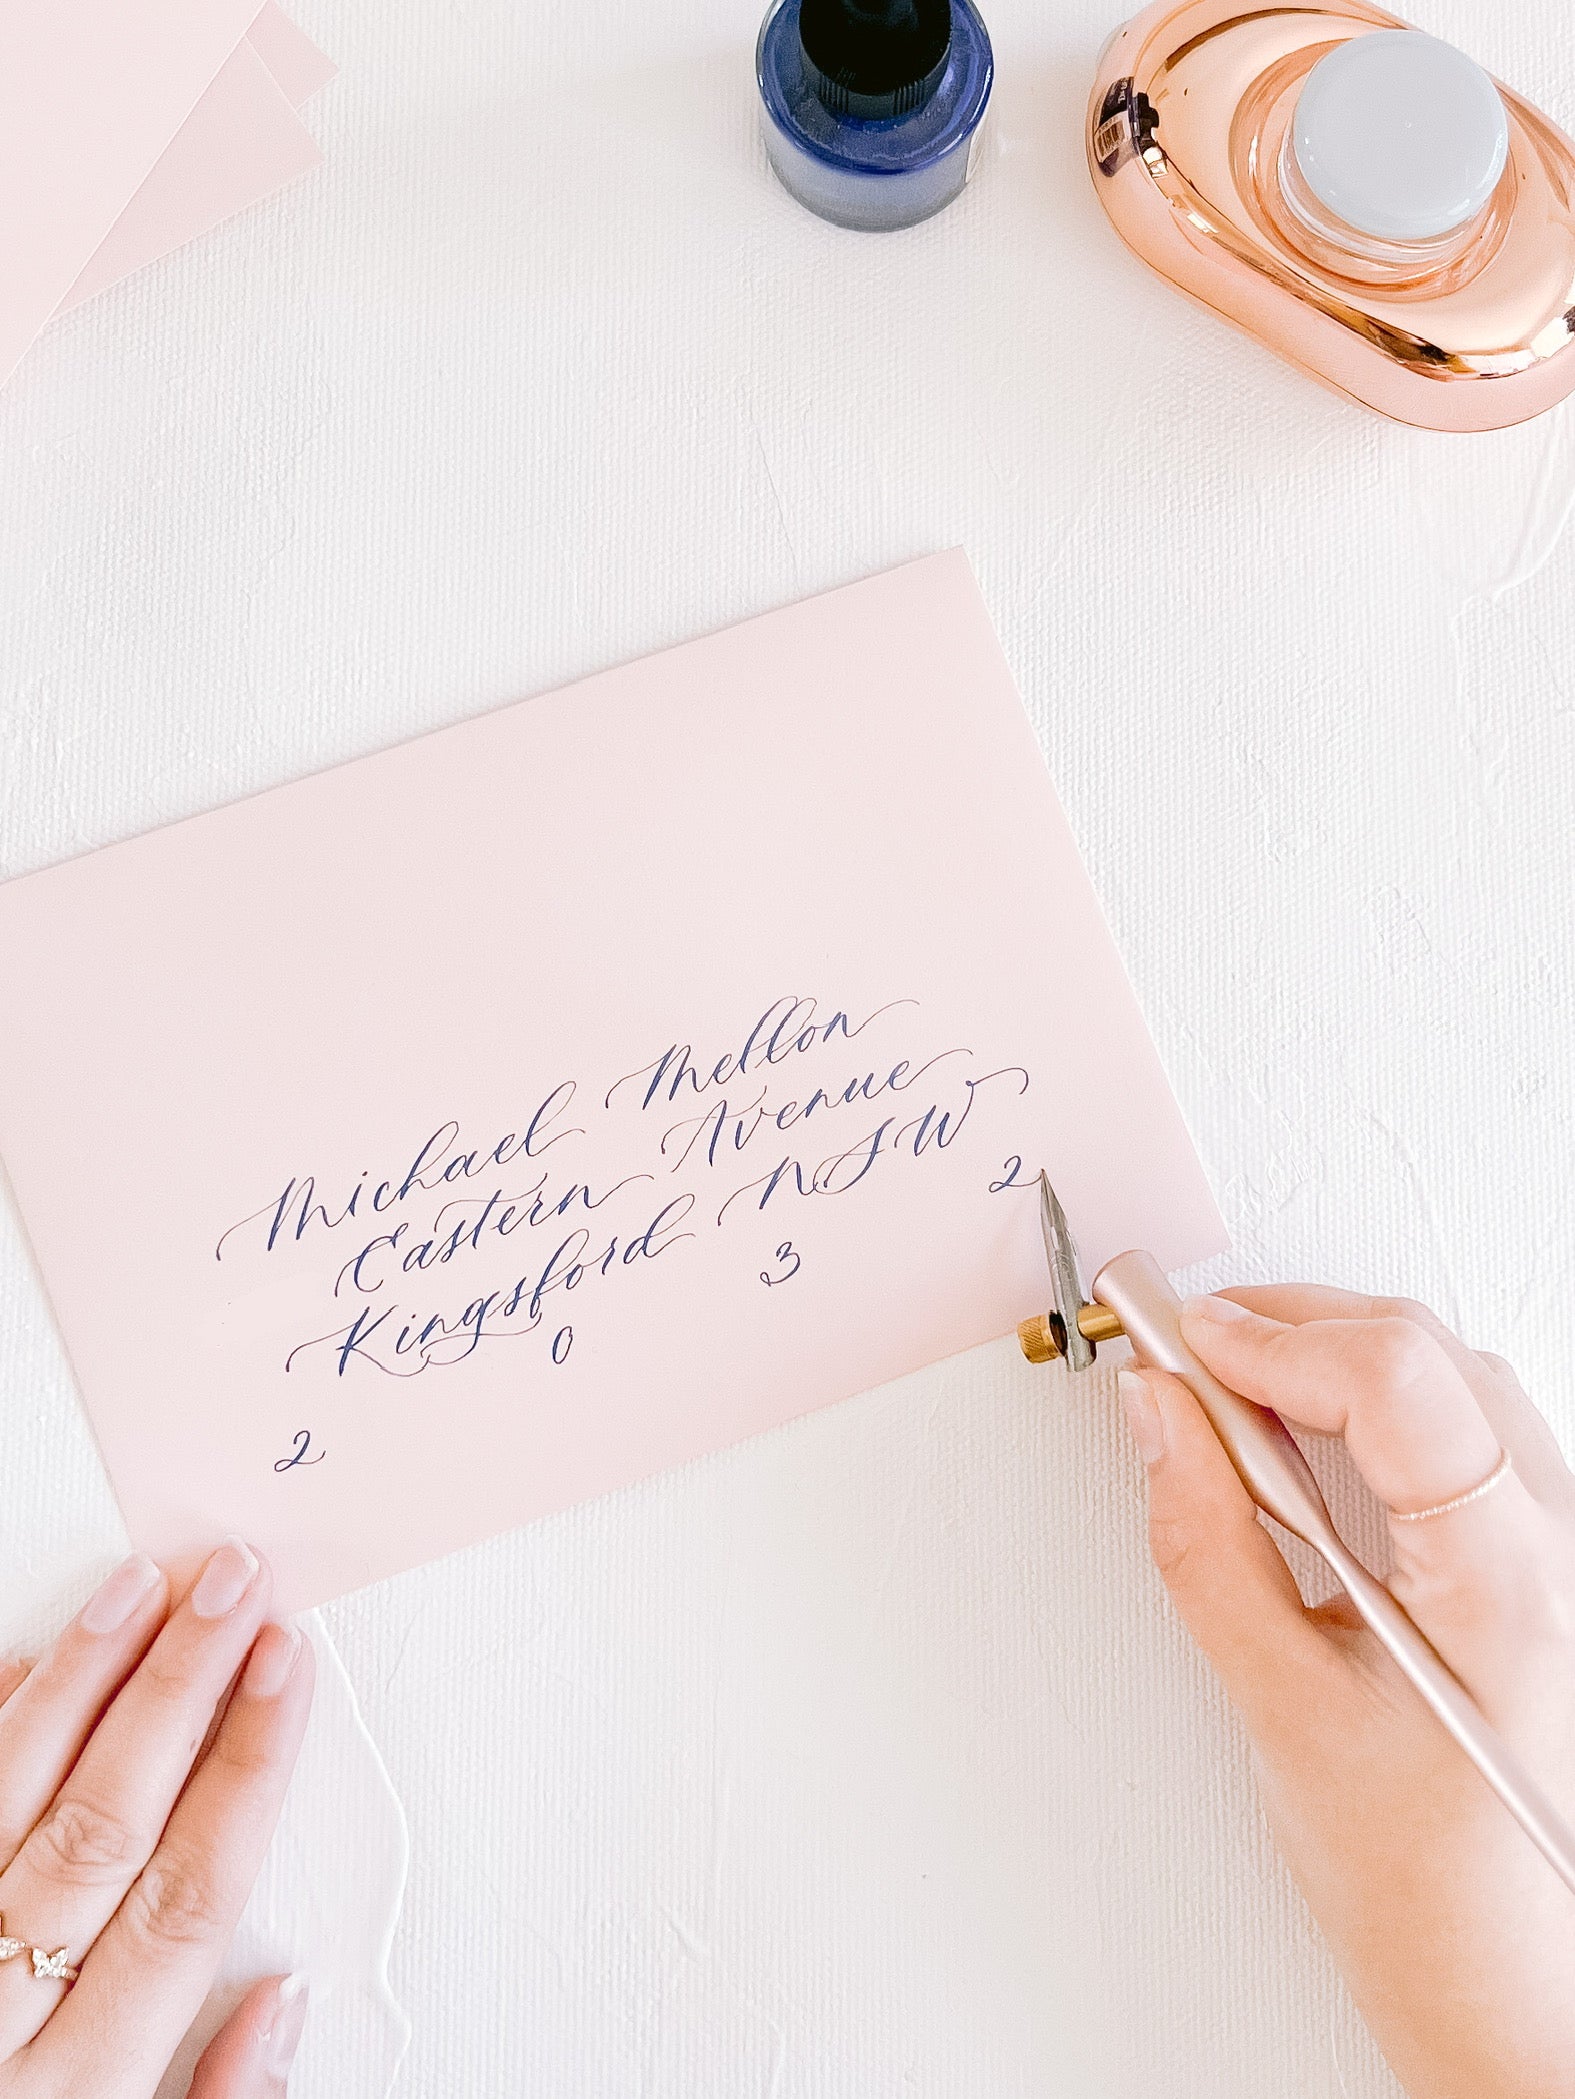 Michael Mellon
Eastern Avenue
Kingsford NSW
2 0 3 2